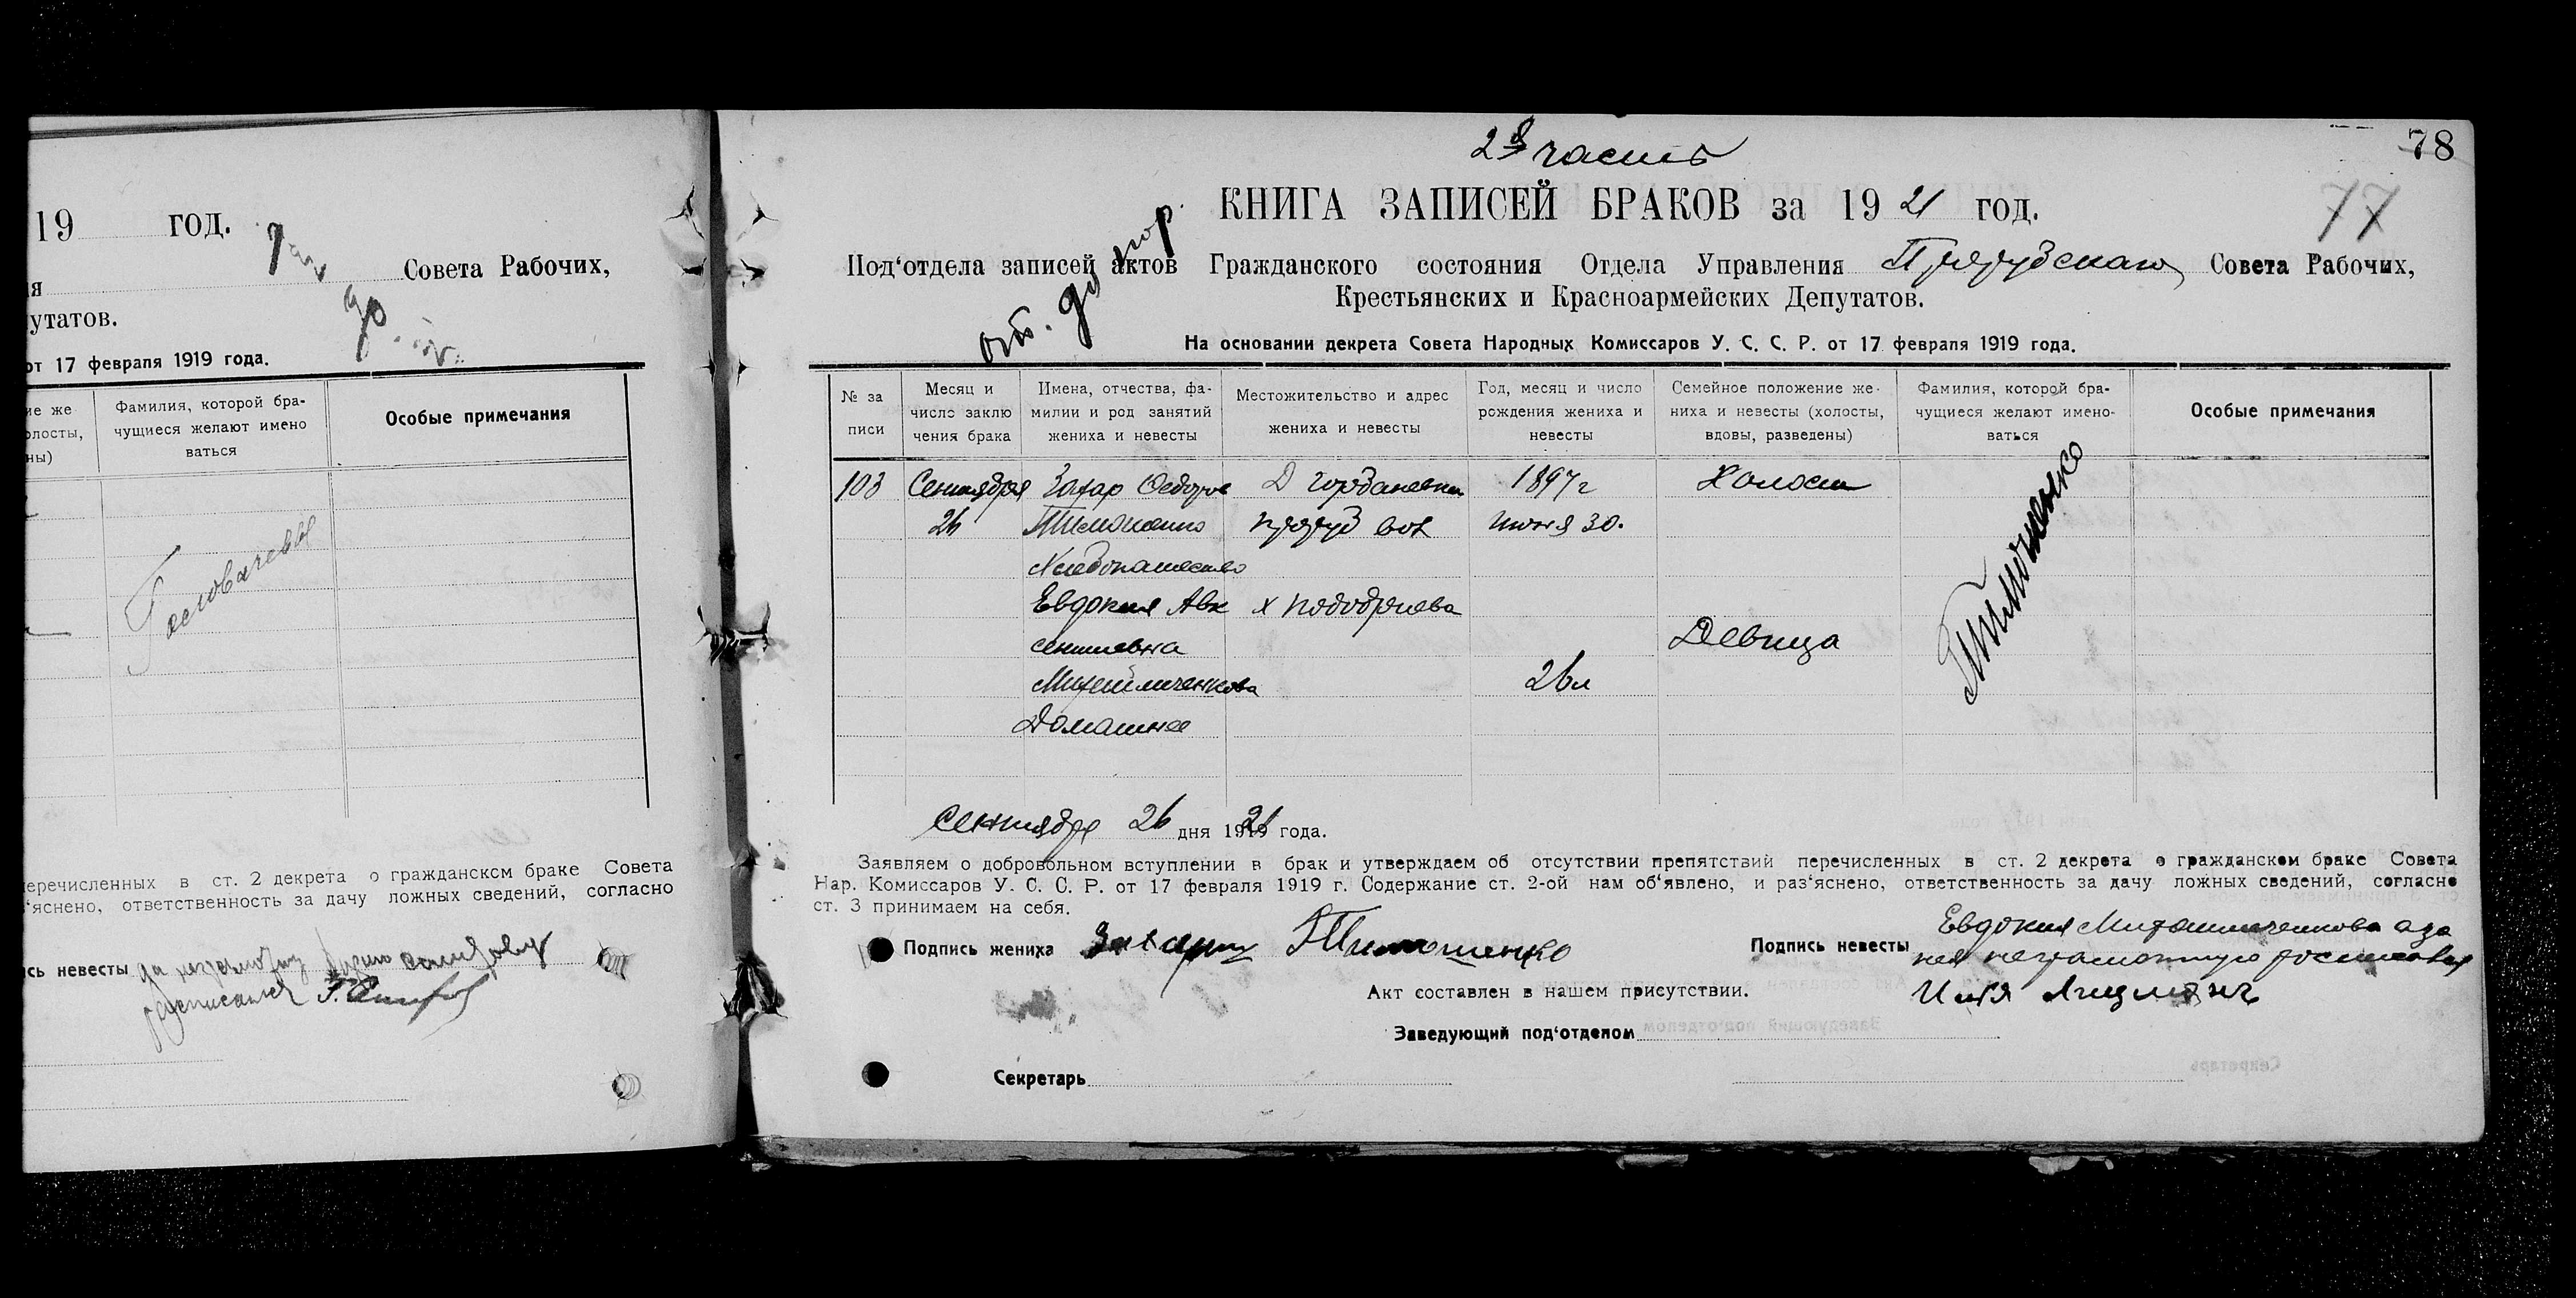 19 год.
Совета Рабочих,
я
утатов.
от 17 февраля 1919 года.
ие же
олосты,
ны)
Фамилия, которой бра-
чущиеся желают имено
ваться
Особые примечания
еречисленных в ст. 2 декрета о гражданском браке Совета
'яснено, ответственность за дачу ложных сведений, согласно
сь невесты
расписался
2я часть
78
77
КНИГА ЗАПИСЕЙ БРАКОВ за 1921 год.
Под'отдела записей актов Гражданского состояния Отдела Управления Совета Рабочих,
Крестьянских и Красноармейских Депутатов.
На основании декрета Совета Народных Комиссаров У. С. С. Р. от 17 февраля 1919 года.
№ за
писи
Месяц и
число заклю
чения брака
Имена, отчества, фа-
милии и род занятий
жениха и невесты
Местожительство и адрес
жениха и невесты
Год, месяц и число
рождения жениха и
невесты
Семейное положение же-
ниха и невесты (холосты,
вдовы, разведены)
Фамилия, которой бра-
чущиеся желают имено-
ваться
Особые примечания
103 Сентября Захар Федоров Д 1897 г Холост
26 Тимошенко вол июня 30.
Хлебопашество
Евдокия Авк х
сентиевна Девица
26 л
Домашнее
Тимошенко
Сентября 26 дня 1921 года.
Заявляем о добровольном вступлении в брак и утверждаем об отсутствии препятствий перечисленных в ст. 2 декрета о гражданском браке Совета
Нар. Комиссаров У. С. С. Р. от 17 февраля 1919 г. Содержание ст. 2-ой нам об'явлено, и раз'яснено, ответственность за дачу ложных сведений, согласно
ст. 3 принимаем на себя.
Подпись жениха Захарий Тимошенко
Подпись невесты Евдокия а за
нея неграмотную
Илья
Акт составлен в нашем присутствии.
Заведующий под'отделом
Секретарь